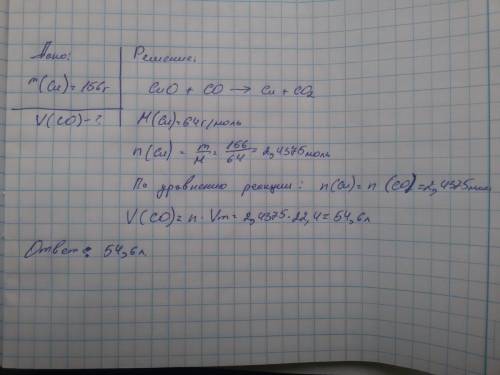 Дано:
m(Cu) = 156г
V(CO) - ?
Решение:
CuO + CO → Cu + CO₂
M(Cu) = 64 г/моль
n(Cu) = m/M = 156/64 = 2,4375 моль
По уравнению реакции: n(Cu) = n(CO) = 2,4375 моль
V(CO) = n · Vm = 2,4375 · 22,4 = 54,6 л
Ответ: 54,6 л